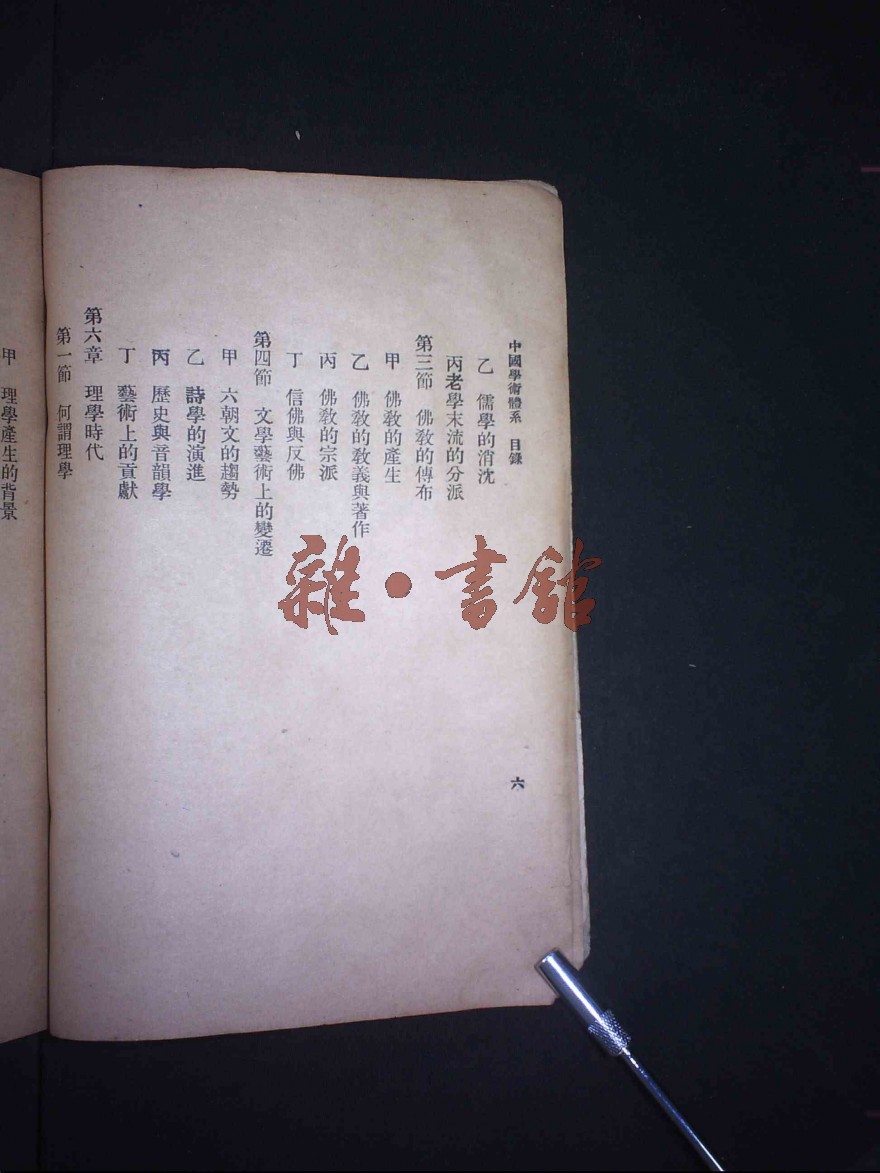 中國學術體系　目錄
乙　儒學的消沈
丙老學末流的分派
第三節　佛敎的傳布
甲　佛敎的產生
乙　佛敎的敎義與著作
丙　佛敎的宗派
丁　信佛與反佛
第四節　文學藝術上的變遷
甲　六朝文的趨勢
乙　詩學的演進
丙　歷史與音韻學
丁　藝術上的貢獻
第六章　理學時代
第一節　何謂理學
六
甲　理學產生的背景
雜·書館